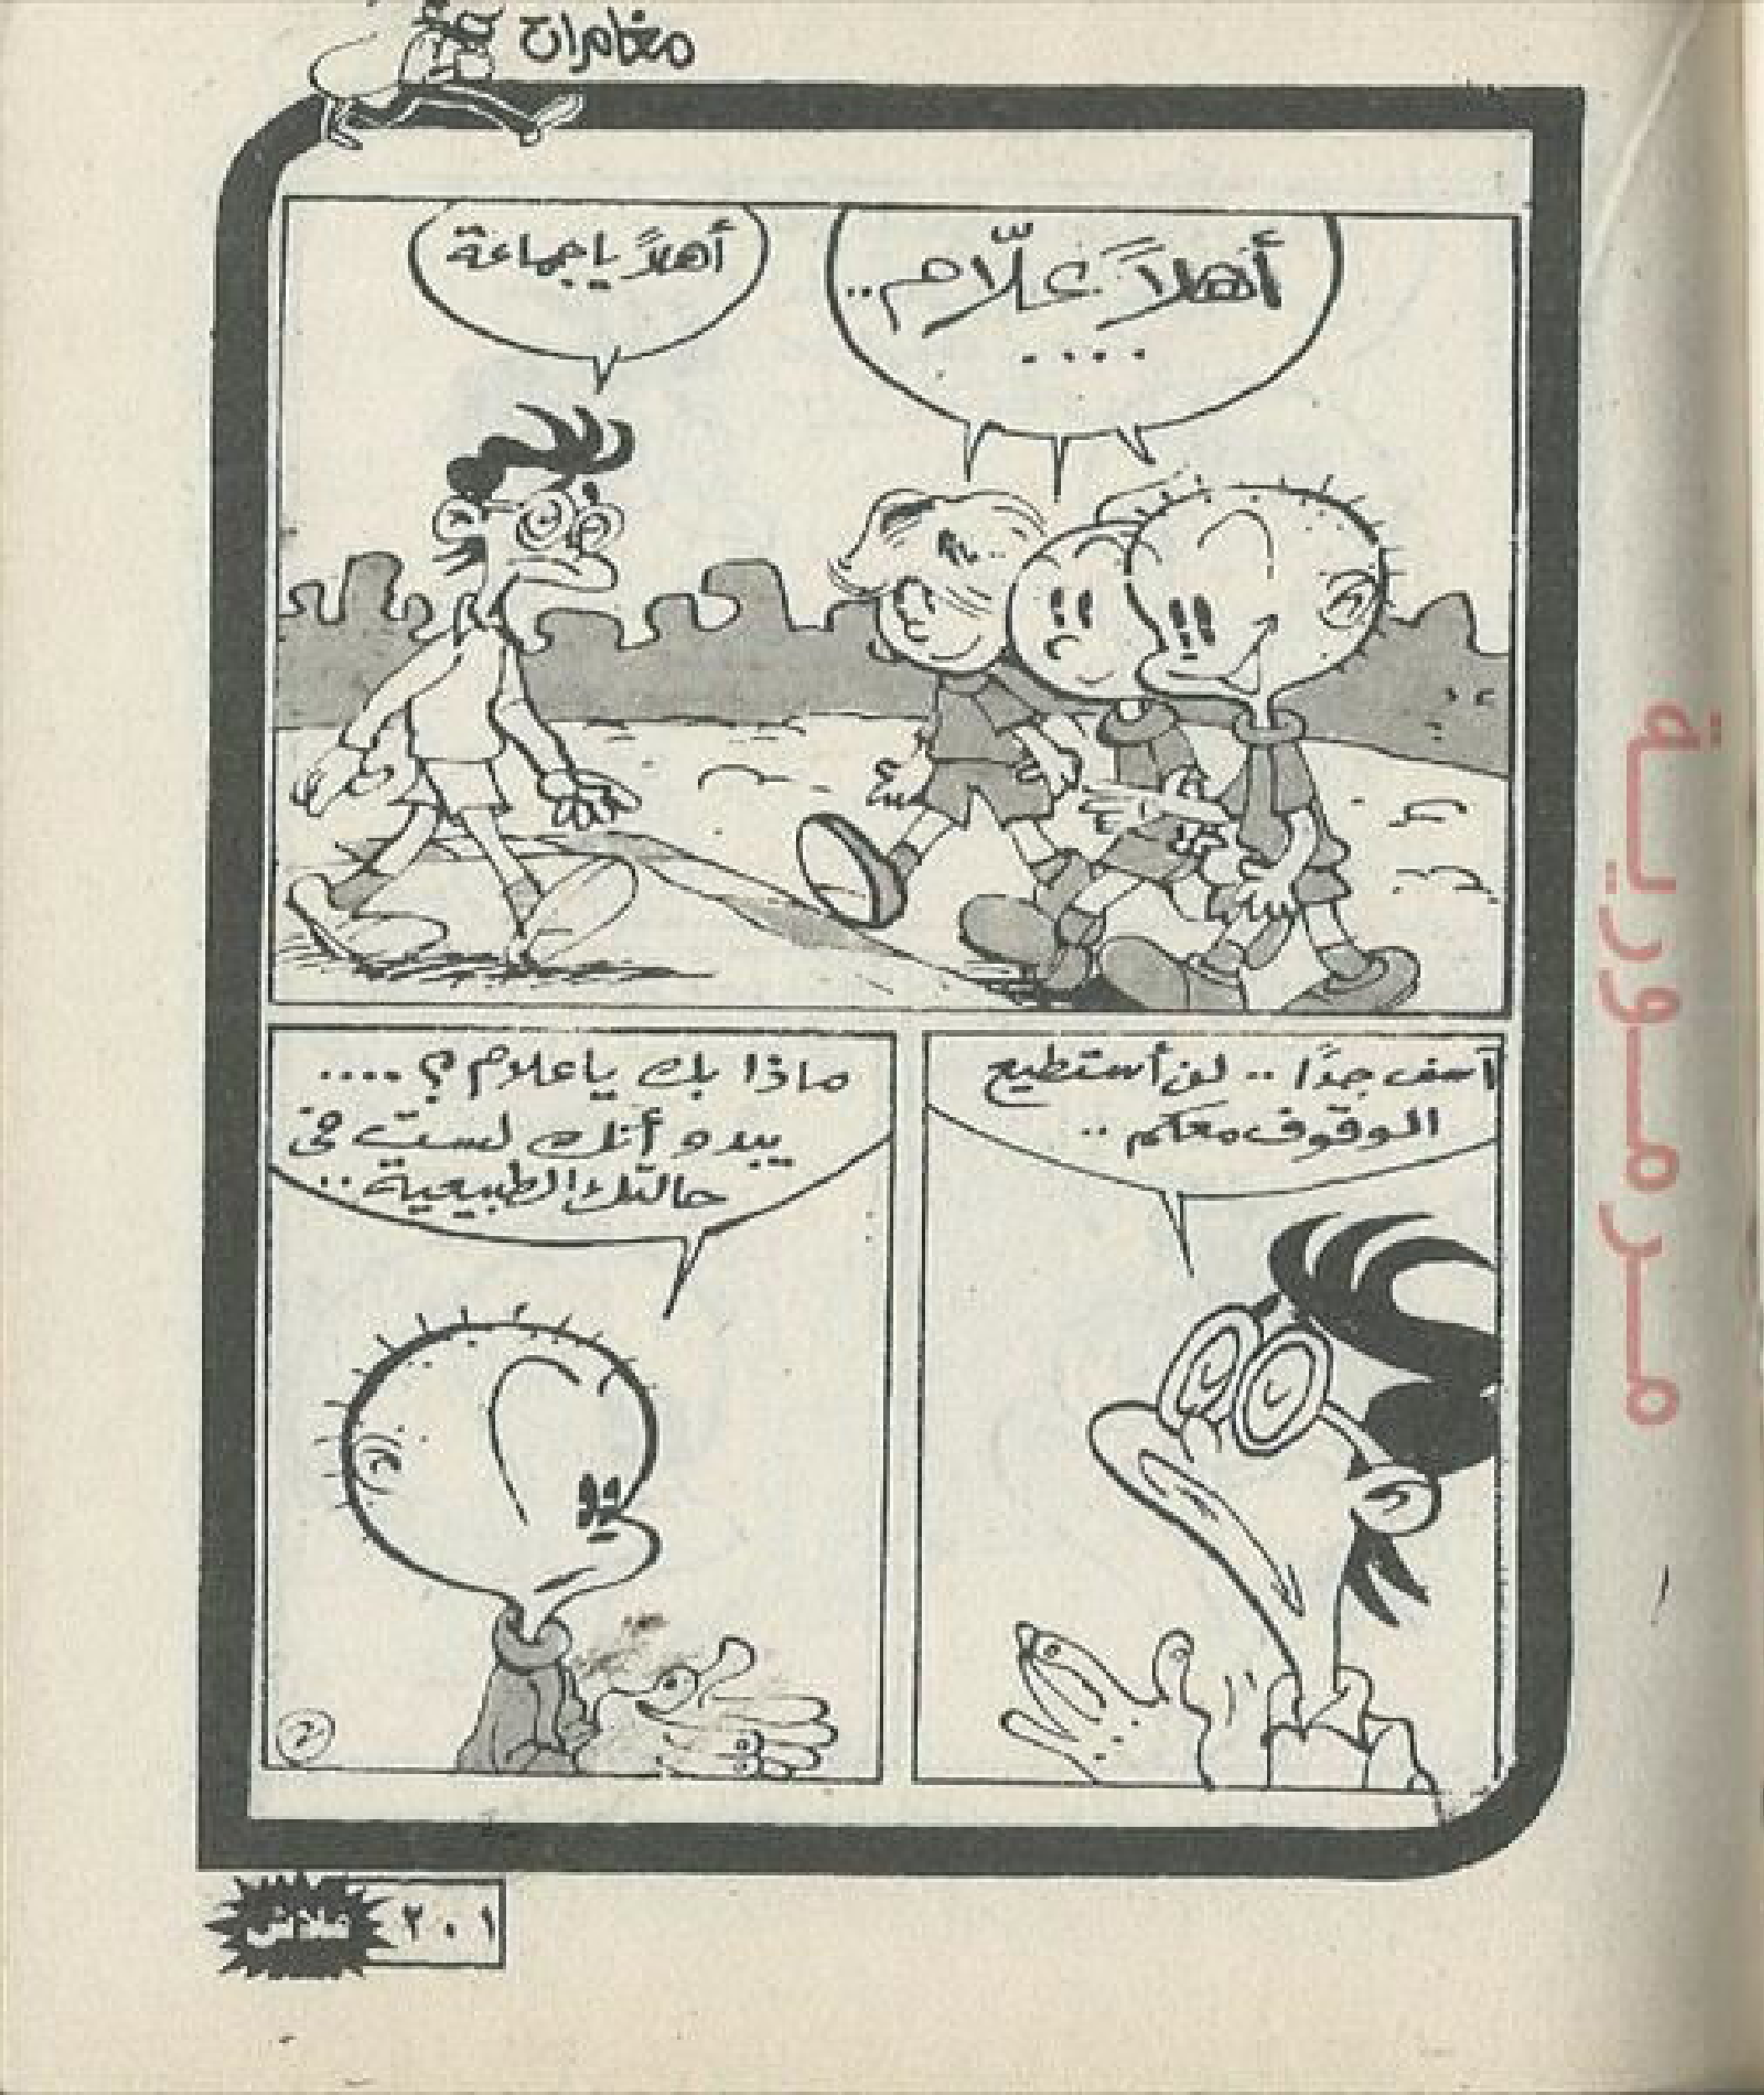 مغامرات
أهلاً علّام..
....
أهلاً يا جماعة
آسف جدًا .. لن أستطيع
الوقوف معكم ..
ماذا بك يا علام ؟ ....
يبدو أنك لست فى
حالتك الطبيعية ..
٢
٢٠١
فلاش
مرمورية